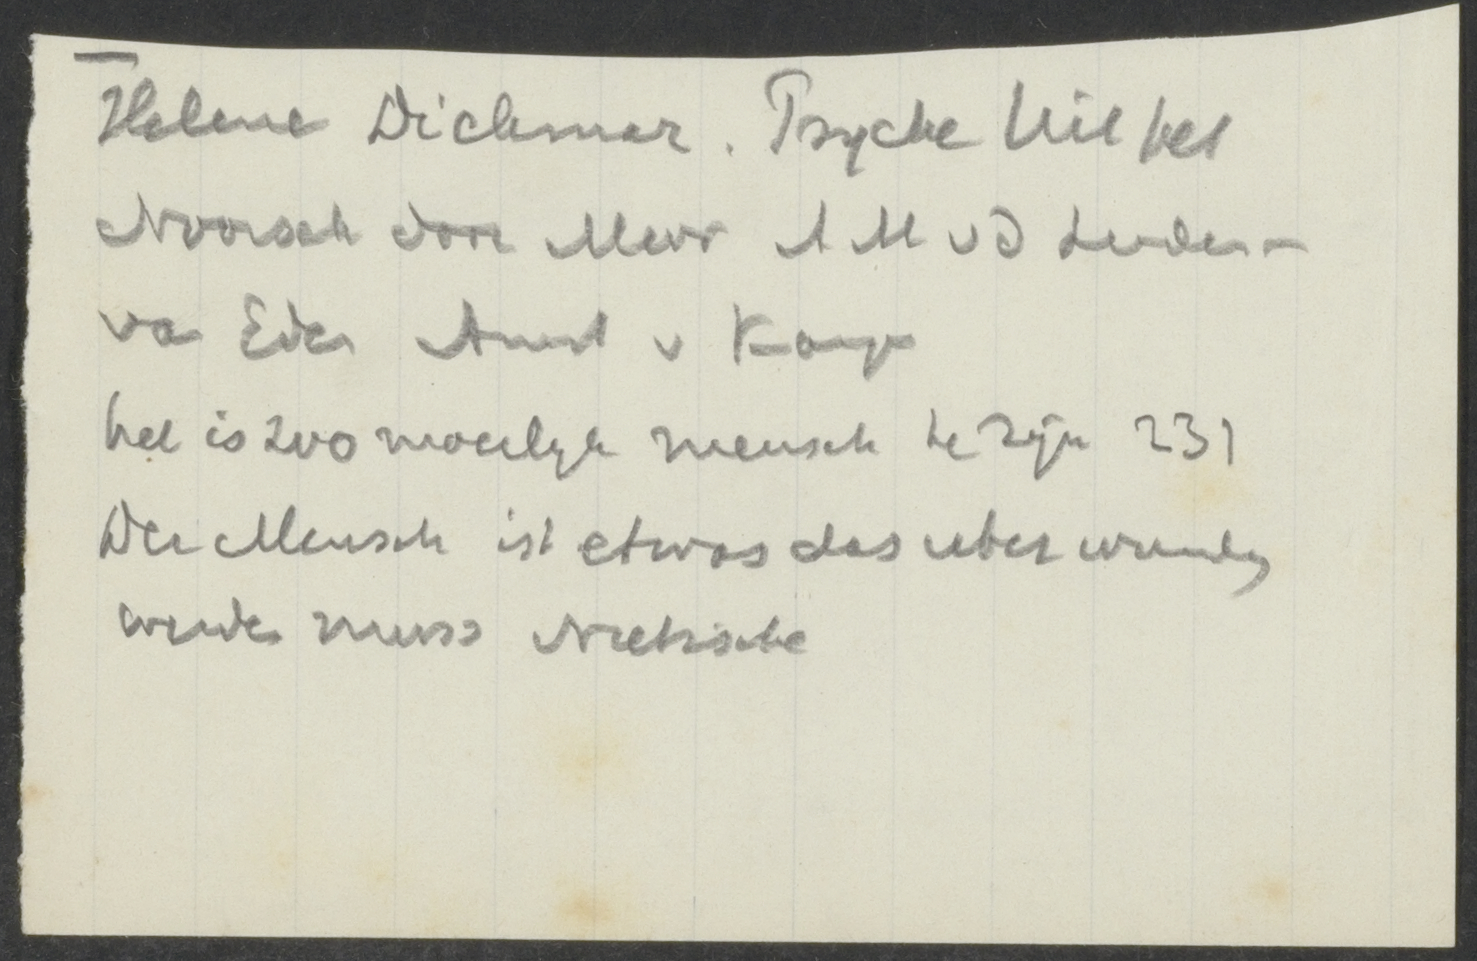 Helene Dickmar. Psyche Uit het
Noorsch door Mevr A M v D Linden-
va Eden Amst v Kampe
het is zoo moeilijk mensch te zijn 231
Der Mensch ist etwas das uber wunden
werden muss Nietzsche